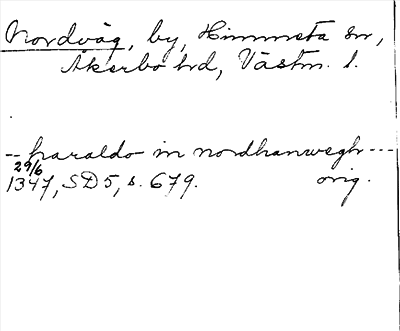 Nordväg, by, Himmeta sn,
Åkerbo hd, Västm. l.
-- haraldo in nordhanwegh ---
29/6
1347, SD 5, s. 679. orig.